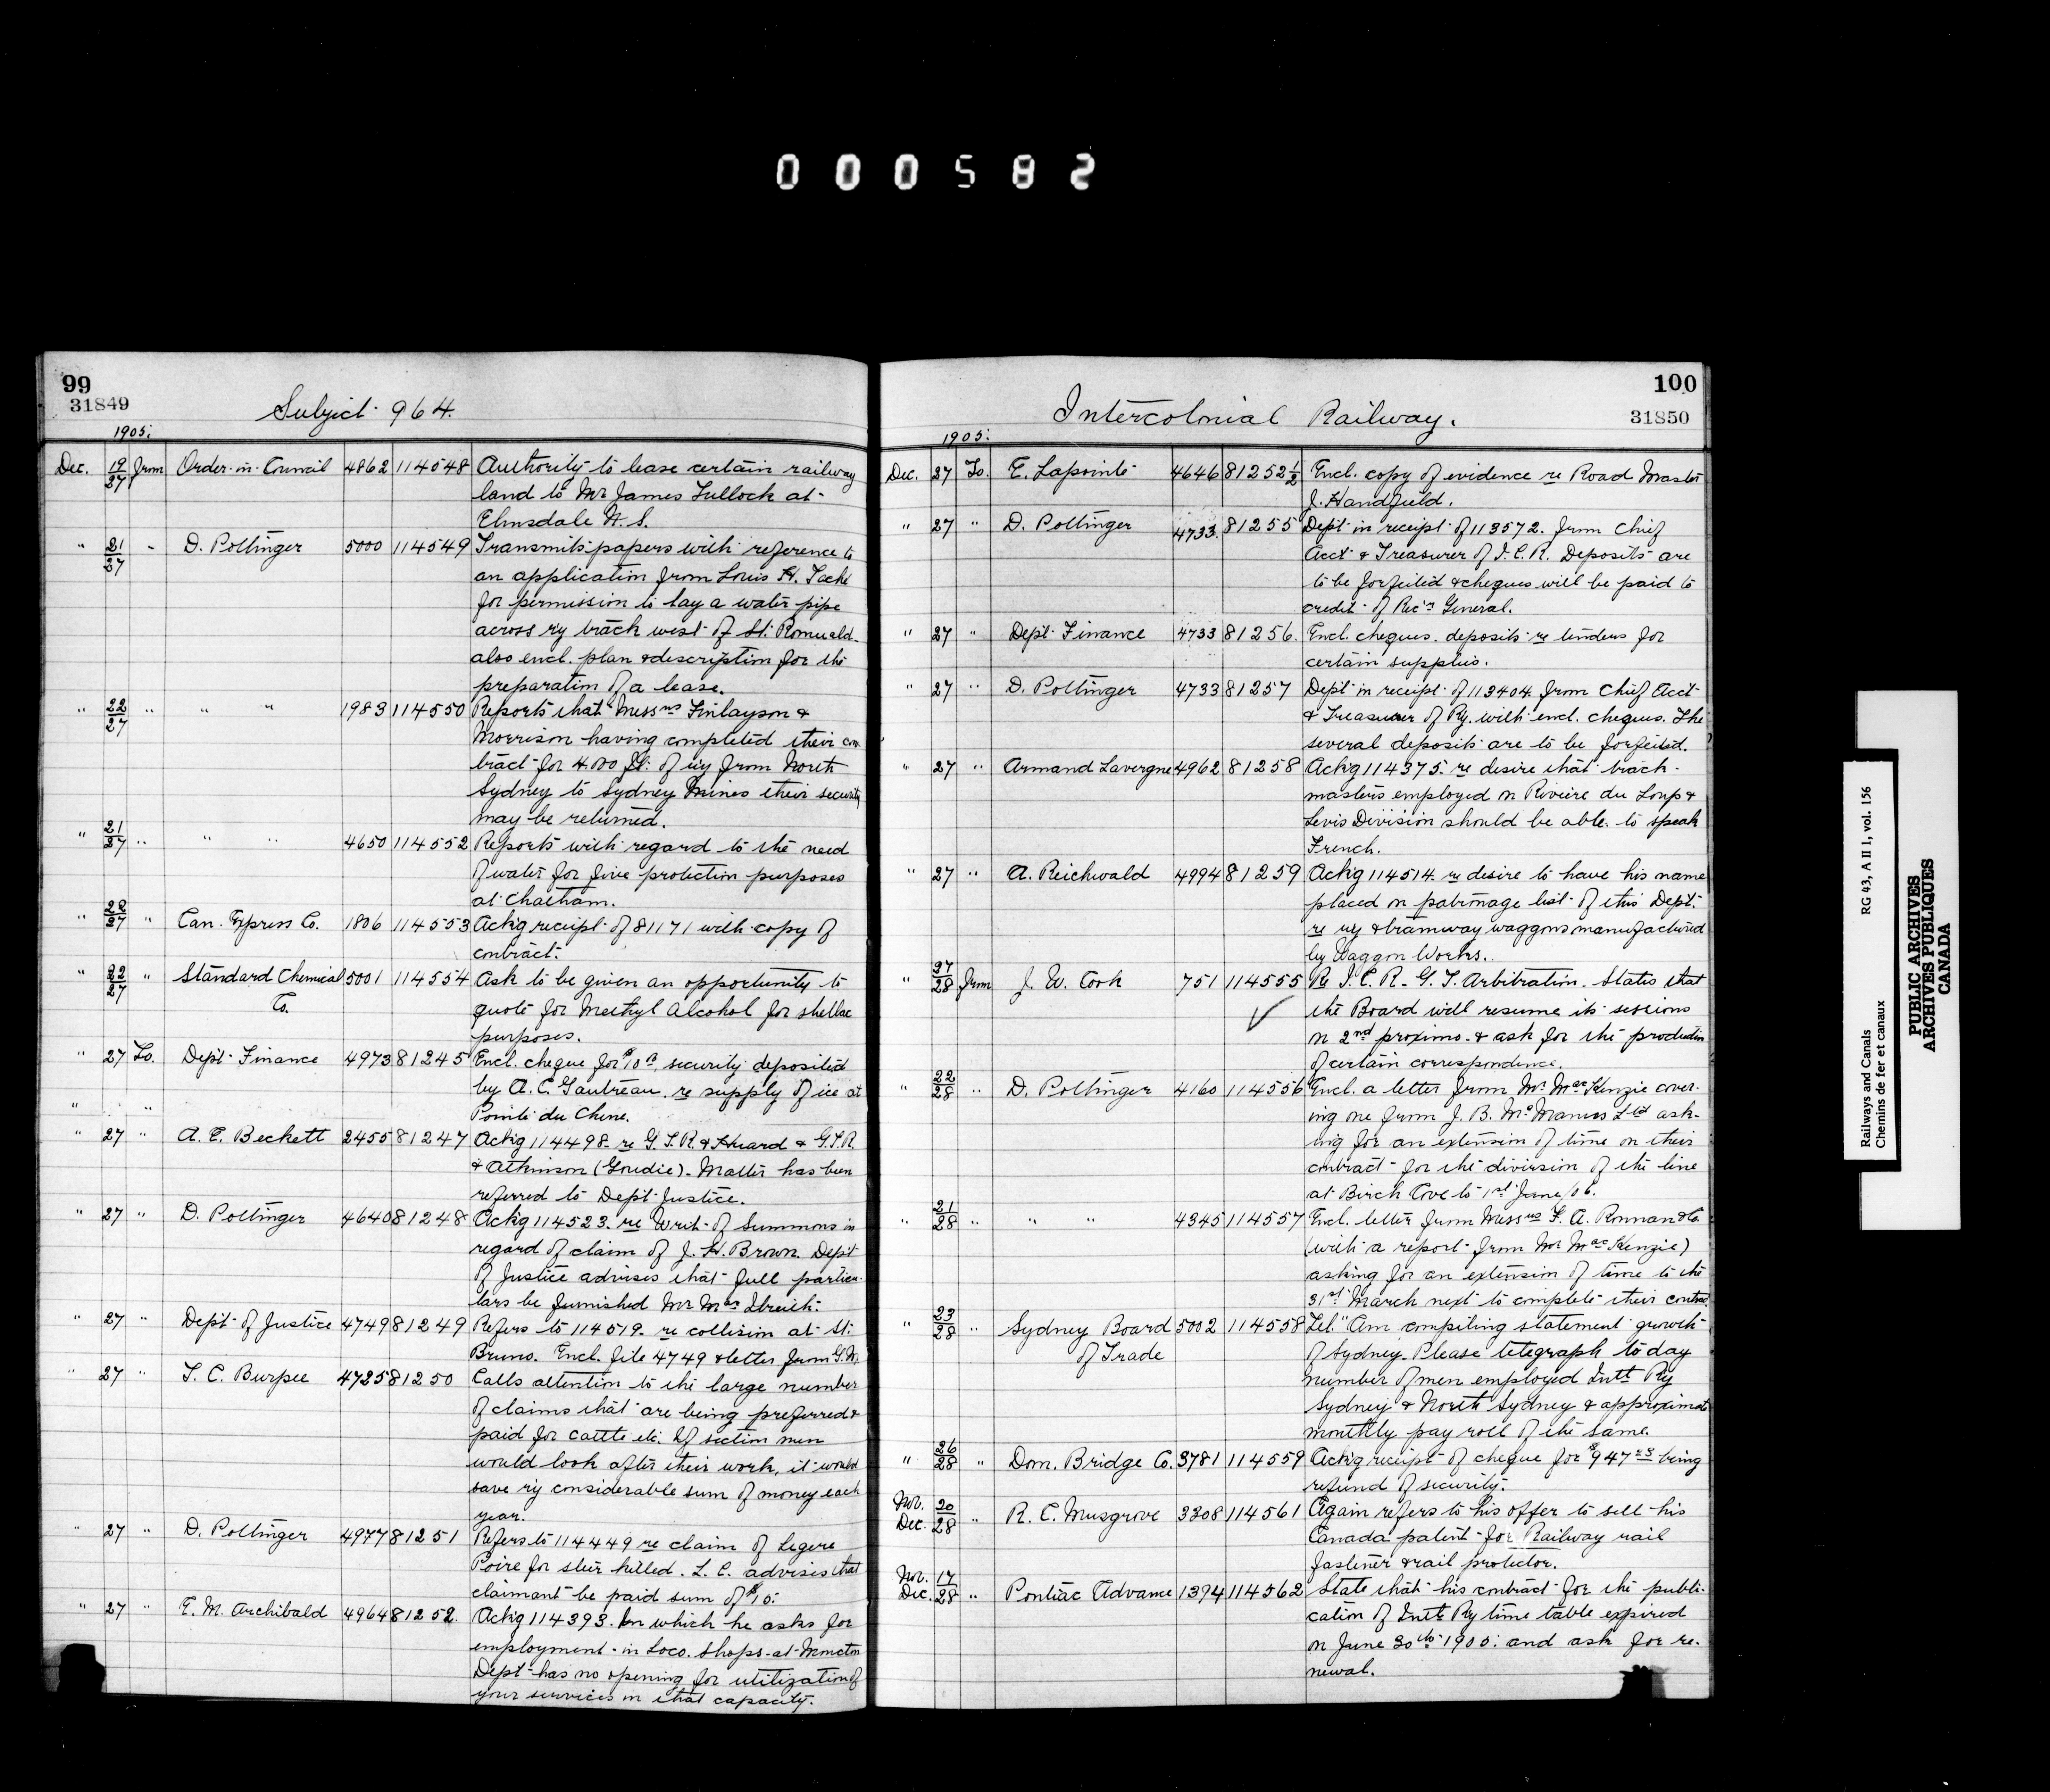 000582
99
31849
Subject 964.
1905.
Dec. 19/27 from Order-in-Council 4862 114548 Authority to lease certain railway
land to Mr James Tullock at
Elmsdale N.S.
" 21/27 " D. Pottinger 5000 114549 Transmits papers with reference to
an application from Louis H. Taché
for permission to lay a water pipe
across ry track west of St. Romuald.
also encl. plan & description for the
preparation of a lease.
" 22/27 " " " 1983 114550 Reports that Messrs Finlayson &
Morrison having completed their con
tract for 4.000 ft. of ry from North
Sydney to Sydney Mines their security
may be returned.
" 21/27 " " " 4650 114552 Reports with regard to the need
of water for fire protection purposes
at Chatham.
" 22/27 " Can. Express Co. 1806 114553 Ack'g receipt of 81171 with copy of
contract.
" 22/27 " Standard Chemical 5001 114554 Ask to be given an opportunity to
Co. quote for Methyl Alcohol for shellac
purposes.
" 27 To. Dept. Finance 4973 81245 Encl. cheque for $10 security deposited
by A. C. Gautreau. re supply of ice at
" " Pointe du Chene.
" 27 " A. E. Beckett 2455 81247 Ack'g 114498. re G.T.R. & Huard & G.T.R.
& Atkinson (Goudie). Matter has been
referred to Dept. Justice.
" 27 " D. Pottinger 4640 81248 Ack'g 114523. re Writ of Summons in
regard of claim of J. H. Brown. Dept
of Justice advises that full particu-
lars be furnished Mr
" 27 " Dept. of Justice 4749 81249 Refers to 114519. re collision at St.
Bruno. Encl. file 4749 & letter from G.M.
" 27 " T. C. Burpee 4725 81250 Calls attention to the large number
of claims that are being preferred &
paid for cattle etc. If section men
would look after their work, it would
save ry considerable sum of money each
year.
" 27 " D. Pottinger 4977 81251 Refers to 114449 re claim of Legere
Poire for steer killed. L. C. advises that
claimant be paid sum of $10.
" 27 " E. M. Archibald 4964 81252. Ack'g 114393. in which he asks for
employment in Loco. Shops at Moncton
Dept has no opening for utilization of
your services in that capacity.
100
31850
Intercolonial Railway.
1905.
Dec. 27 To. E. Lapointe 4646 81252 1/2 Encl. copy of evidence re Road Master
J. Handfield.
" 27 " D. Pottinger 4733. 81255 Dept in receipt of 113572. from Chief
Acct. & Treasurer of I. C. R. Deposits are
to be forfeited & cheques will be paid to
credit of Rec'r General.
" 27 " Dept. Finance 4733 81256. Encl. cheques. deposits re tenders for
certain supplies.
" 27 " D. Pottinger 4733 81257 Dept in receipt of 113404. from Chief Acct
& Treasurer of Ry. with encl. cheques. The
several deposits are to be forfeited.
" 27 " Armand Lavergne 4962 81258 Ack'g 114375. re desire that track-
masters employed on Riviere du Loup &
Levis Division should be able to speak
French.
" 27 " A. Reichwald 4994 81259 Ack'g 114514. re desire to have his name
placed on patronage list of this Dept.
re ry & tramway waggons manufactured
by Waggon Works.
" 27/28 from J. W. Cook 751 114555 Re I. C. R. - G. T. Arbitration. States that
the Board will resume its sessions
on 2nd proximo. & ask for the production
of certain correspondence.
" 22/28 " D. Pottinger 4160 114556 Encl. a letter from Mr MacKenzie cover-
ing one from J. B. McManus Ltd ask-
ing for an extension of time on their
contract for the diversion of the line
at Birch Cove to 1st June/06.
" 21/28 " " " 4345 114557 Encl. letter from Messrs F. A. Ronnan & Co.
(with a report from Mr MacKenzie)
asking for an extension of time to the
31st March next to complete their contract.
" 23/28 " Sydney Board 5002 114558 Tel. "Am compiling statement growth
of Trade of Sydney. Please telegraph to day
number of men employed Intl Ry
Sydney & North Sydney & approximate
monthly pay roll of the same.
" 26/28 " Dom. Bridge Co. 3781 114559 Ack'g receipt of cheque for $947 being
refund of security.
Nov. 20 Dec. 28 " R. C. Musgrove 3308 114561 Again refers to his offer to sell his
Canada patent for Railway rail
fastener & rail protector.
Nov. 17 Dec. 28 " Pontiac Advance 1394 114562 State that his contract for the publi-
cation of Intl. Ry time table expired
on June 30th 1905. and ask for re-
newal.
Railways and Canals RG 43, A II 1, vol. 156
Chemins de fer et canaux
PUBLIC ARCHIVES
ARCHIVES PUBLIQUES
CANADA